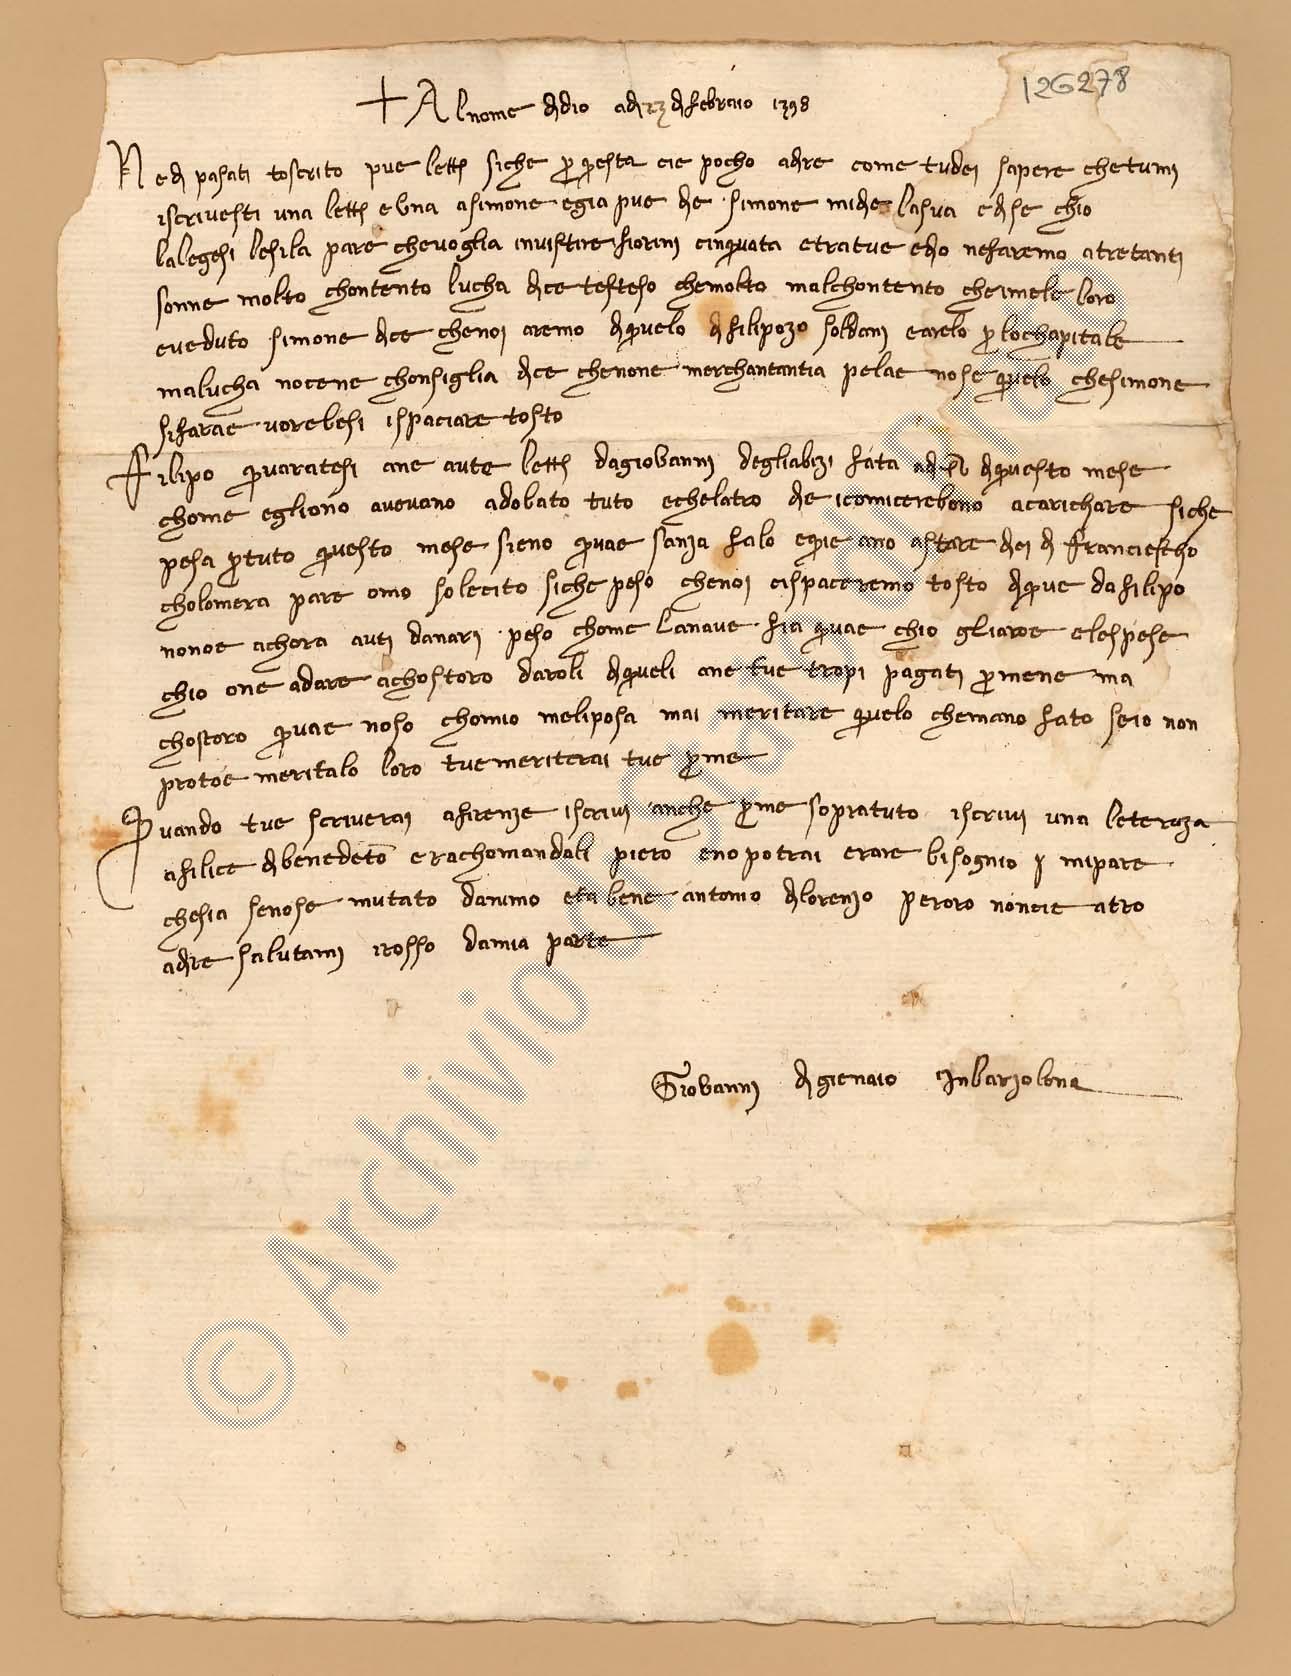 126278
+ Al nome d dio ad 23 d febraio 1398
Ne d pasati toscrito pue lett siche p questa cie pocho adre come tudei sapere chetumi
iscrivesti una lett e una a simone egia pue de simone mide lasua edse chio
lalegesi lesila pare chevoglia investire fiorini cinquata etratue edo nefaremo atretanti
sonne molto chontento lucha dce testeso chemolto malchontento che mele loro
eveduto simone dce chenoi aremo dquelo d filipozo soldani earelo p lochapitale
malucha nocene chonsiglia dce chenone merchantantia pelae nose quelo chesimone
sifarae vorebesi ispaciare tosto
Filipo quaratesi ane aute lett dagiovanni degliabizi fata ad dquesto mese
chome egliono avevano adobato tuto echelatro de icomicerebono acarichare siche
pesa ptuto questo mese sieno quae sanza falo eqie ano astare dei d franciescho
cholomera pare omo solecito siche peso chenoi cispaceremo tosto dque dafilipo
nonoe achora auti danari peso chome lanave fia quae chio gliaroe elespese
chio one adare achostoro daroli dqueli ane tue tropi pagati pmene ma
chostoro quae noso chomio meliposa mai meritare quelo chemano fato seio non
protoe meritalo loro tue meriterai tue pme
Quando tue scriverai afirenze iscrivi anche pme sopratuto iscrivi una leteruza
afilice dbenedeto erachomandali piero eno potrai erare bisognio mipare
chesia senose mutato danimo eta bene antonio dlorenzo peroro noncie atro
adre salutami irosso damia parte
Giovanni d gienaio Inbarzolona
© Archivio di Stato di Prato